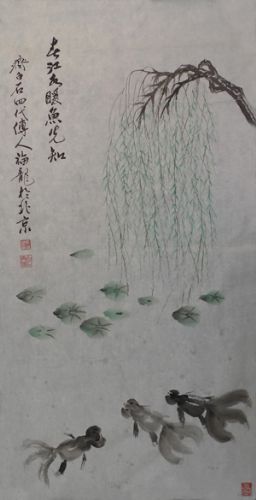 春江水暖魚先知
齊白石四代傳人海龍於北京